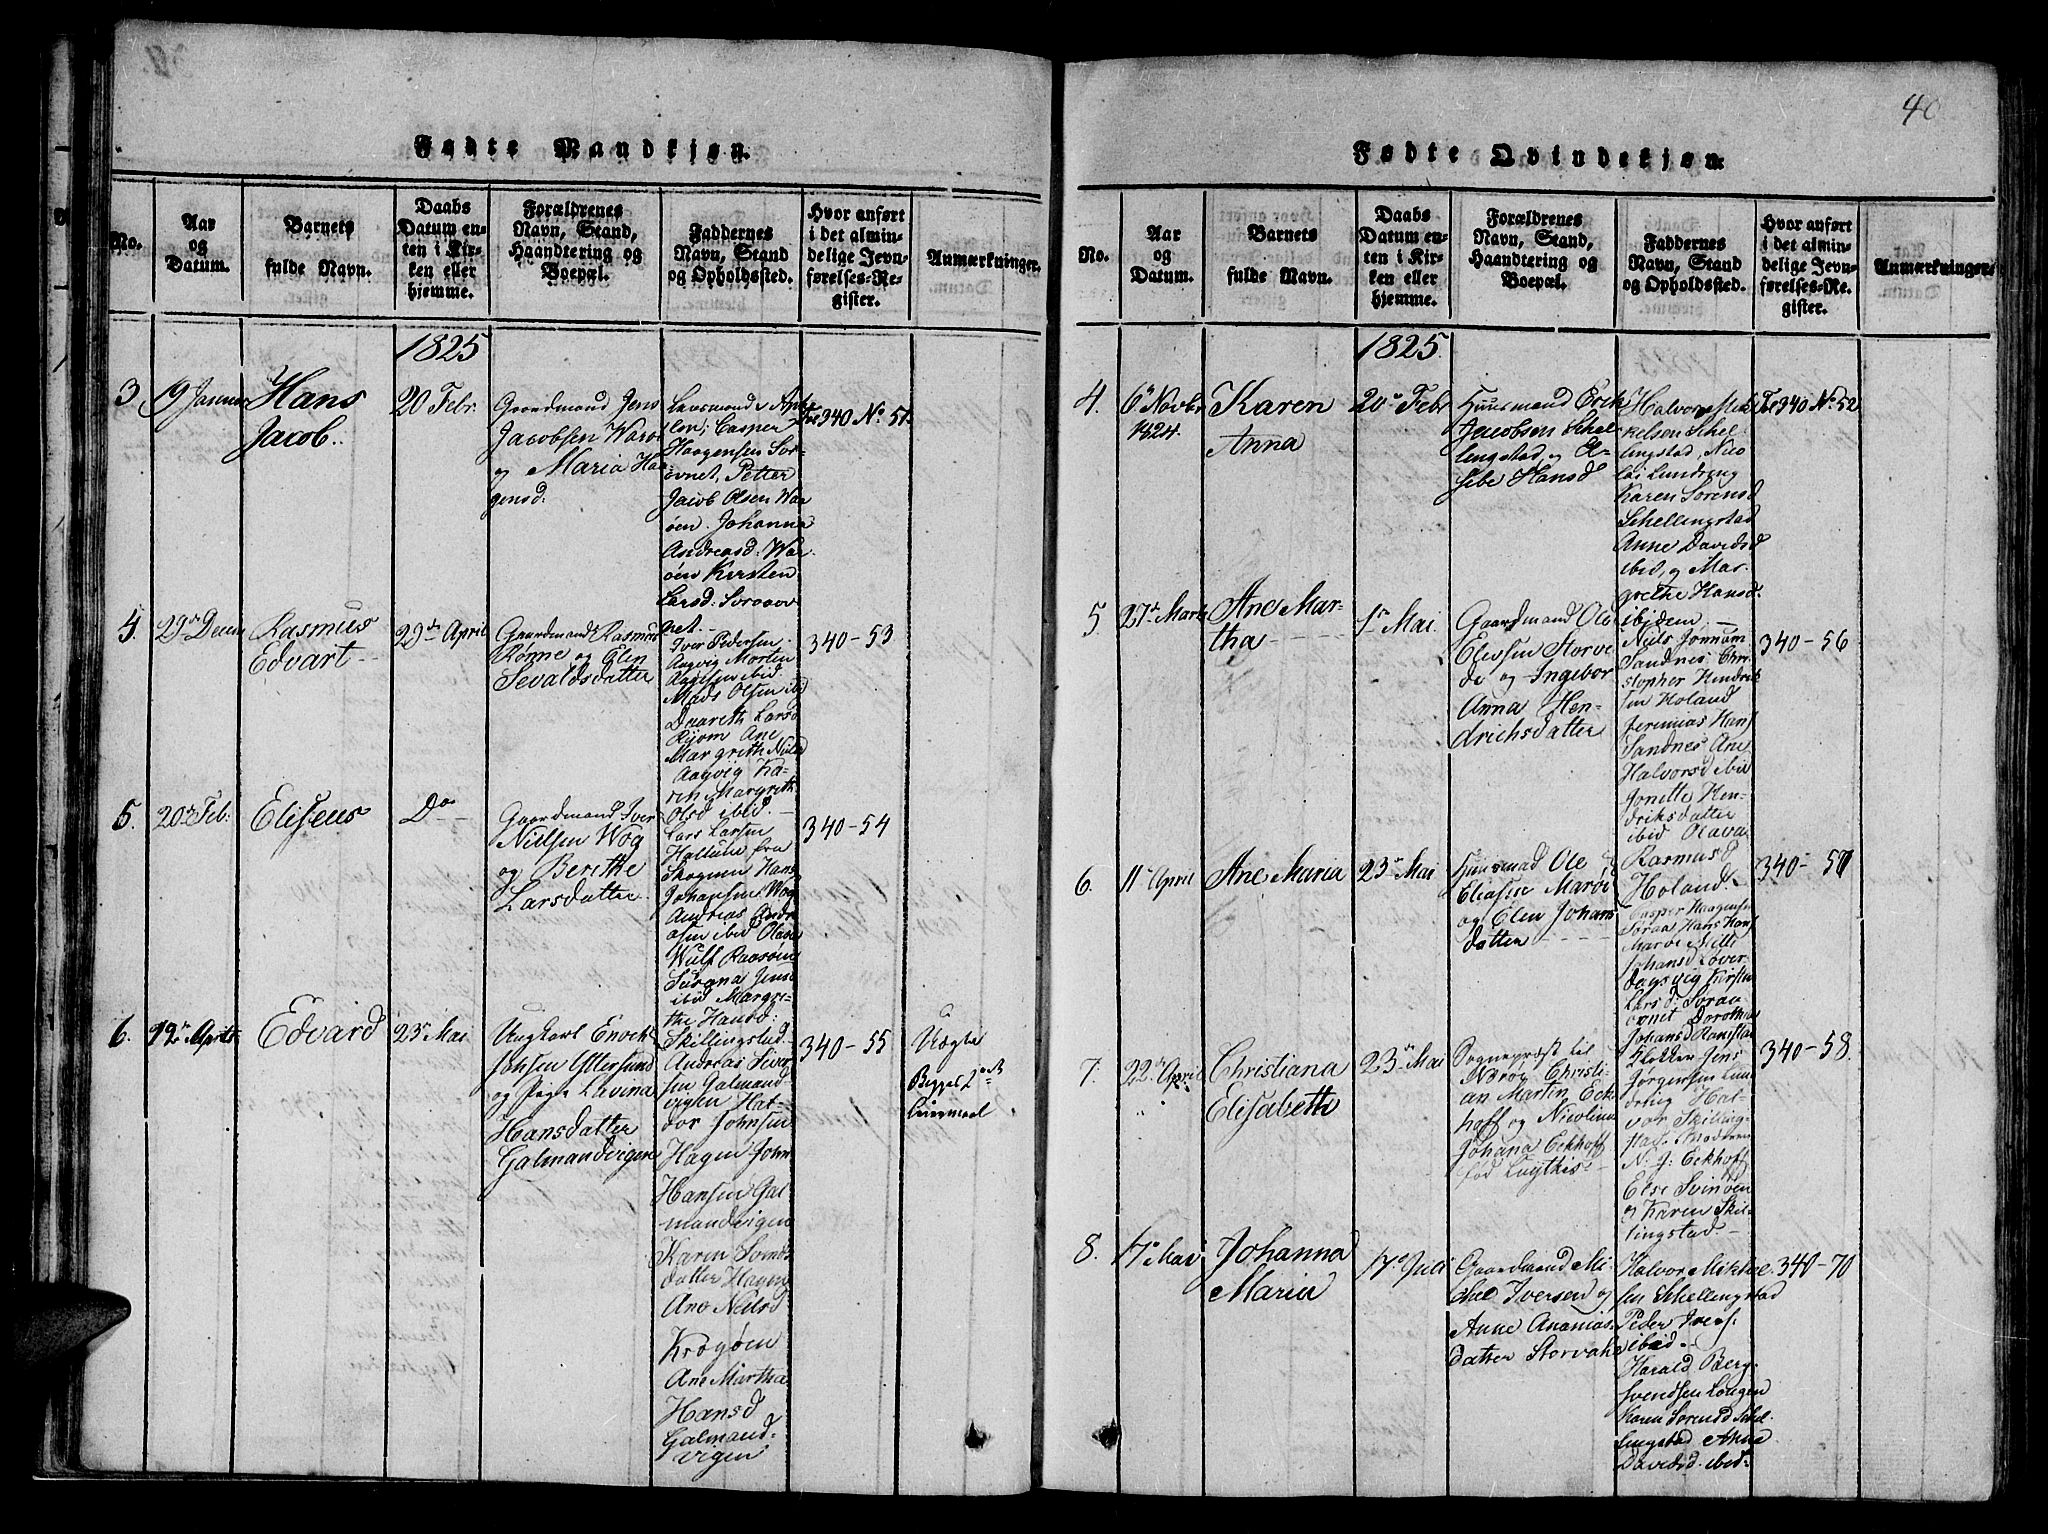 40
Fødte Mandkjøn.
No.
Aar
og
Datum.
Barnets
fulde Navn.
Daabs
Datum en-
ten i Kir-
ken eller
hjemme.
Forældrenes
Navn, Stand,
Haandtering og
Boepæl.
Faddernes
Navn, Stand
og Opholdssted.
Hvor anført
i det almin-
delige Jevn-
førelses-Re-
gister.
Anmærkninger.
1825
3
19 Januar
Hans
Jacob.
20 Febr.
Gaardmand Jens
Jacobsen
og Maria Haa
gensd:
Casper
Haagensen Sor-
ovnet, Petter
Jacob Olsen Wær
øen. Johanna
Andreasd: Wær
øen Kirsten
Larsd: Soraaov
net
340 No. 51
4.
29de Decem
Rasmus
Edvart
29de April
Gaardmand Rasmus
Rønne og Elen
Sevaldsdatter
Iver Pedersen
Aagvig Morten
Aagesen ibid
Mads Olsen ibid
Daareth Larsd
Ryom Ane
Margreth Niels
Aagvig Ka-
ren Margreth
Olsd ibid.
340 - 53
5.
20de Feb:
Eliseus
Do
Gaardmand Iver
Nielsen Wog
og Berithe
Larsdatter
Lars Larsen
Hallum fra
Skognen Hans
Johansen Wog
Andreas Andr
osen ibid Olava
Wulf Raasøen
Susana Jens
ibid Margre-
the Hansd:
Skillingstad
340 - 54
6.
12te April
Edvard
23de Mai
Ungkarl Enoch
Johsen Yttersund
og Pige Lavina
Hansdatter
Galmandvigen
Andreas Siver
sen Galmand-
vigen Hal-
dor Johnsen
Hagen John
Hansen Gal
mandvigen
Karen Svends
datter Hagen
Ane Nielsd
Krogøen
Ane Martha
Hansd
Galmand-
vigen
340 - 55
Uægte
Begges 2det
Leiermaal
Fødte Qvindekjøn.
No.
Aar
og
Datum.
Barnets
fulde Navn.
Daabs
Datum en-
ten i Kir-
ken eller
hjemme.
Forældrenes
Navn, Stand,
Haandtering og
Boepæl.
Faddernes
Navn, Stand
og Opholdssted.
Hvor anført
i det almin-
delige Jevn-
førelses-Re-
gister.
Anmærkninger
1825.
4.
6te Novbr
1824.
Karen
Anna
20de Febr
Huusmand Erik
Jacobsen Schel
lengstad, og El-
sebe Hansd
Halvor Mik
kelsen Schel
lingstad, Nico
lai Lundring
Karen Sørensd
Schellingstad
Anne Davidsd
ibid, og Mar-
grethe Hansd.
ibidem.
340 No. 52
5.
27de Marts
Ane Mar-
tha
1ste Mai.
Gaardmand Ole
Elevsen Storve
de og Ingebor
Anna Hen-
drichsdatter
Niels Jonnum
Sandnes Chri-
stopher Hendrik
sen Holand
Jeremias Hans
Sandnes Ane
Halvorsd ibid
Jonette Hen-
driksdatter
ibid Olava
Rasmusd
Holand.
340 - 56
6.
11te April
Ane Maria
23de Mai
Huusmad Ole
Eliasen Marøe
og Elen Johans
datter
Casper Haagensen
Soraa Hans Hans
Marøe Mette
Johansd Løver-
dagsvig Kirsten
Larsd: Soraa
ovnet Dorothea
Johansd Ramstad
340 - 57
7.
22de April
Christiana
Elisabeth
23de Mai
Sognepræst til
Nærøe Christi-
an Martin Eck
hoff og Nicolina
Johana Eckhoff
fød Lugthis
Klokker Jens
Jørgensen Lun
dring Hal-
vor Skilling
stad. Moderen
N: J: Eckhoff
Else Svinøen
og Karen Skil-
lingstad.
340 - 58.
8.
17de Mai
Johanna
Maria
17de Juli
Gaardmand Mi-
chel Iversen og
Anne Ananias
datter Storvahl
Halvor Mikkel
sen Schellingstad
Peder Ivers.
ibid.
Harald Berg
svendsen Langen
Karen Sørensd Schel
lingstad Anne
Davidsd. ibid.
340 - 70